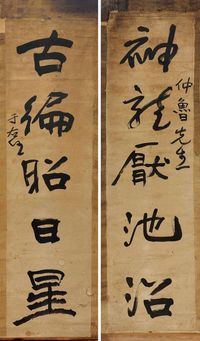 神龍厭池沼
仲魯先生
古徧昭日星
于右任